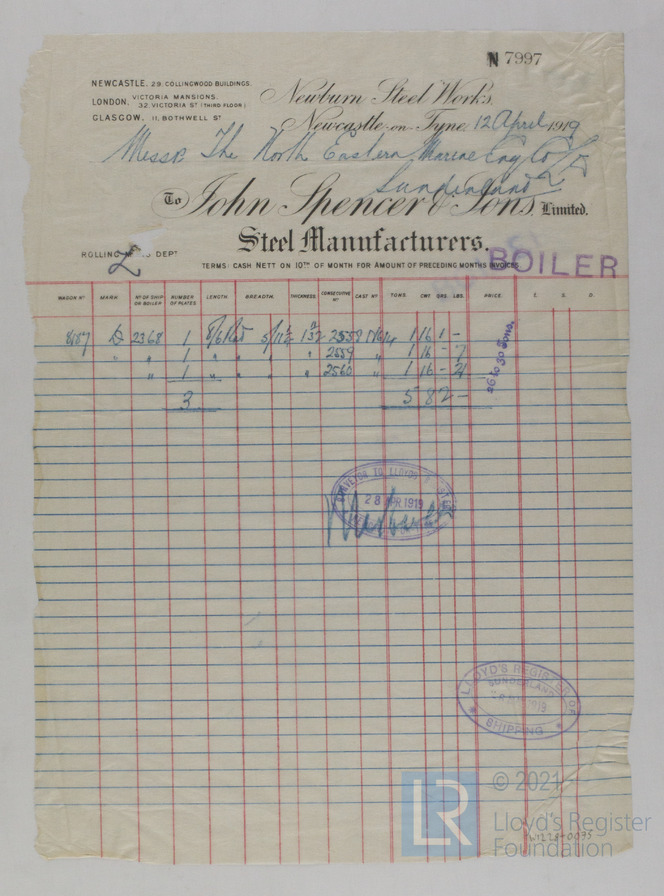 N 7997
NEWCASTLE, 29, COLLINGWOOD BUILDINGS.
LONDON, VICTORIA MANSIONS, 32, VICTORIA ST (THIRD FLOOR)
GLASGOW, 11, BOTHWELL ST
Newburn Steel Works,
Newcastle-on-Tyne, 12 April 1919
Messrs The North Eastern Marine Eng Co Ld
Sunderland
To John Spencer & Sons, Limited.
Steel Manufacturers.
ROLLING DEPT
TERMS: CASH NETT ON 10TH OF MONTH FOR AMOUNT OF PRECEDING MONTHS INVOICES
BOILER
WAGON NO MARK. NO OF SHIP OR BOILER NUMBER OF PLATES LENGTH. BREADTH. THICKNESS CONSECUTIVE NO CAST NO TONS. CWT QRS. LBS. PRICE. £. S. D.
8187 2368 1 8/6 5/11½ 1 2558 1 16 1 -
" " 1 " " " 2559 " 1 16 - 7
" 1 " " " 2560 " 1 16 - 21
3 5 8 2 -
26 to 30 Tons.
SURVEYOR TO LLOYD'S
28 APR 1919
LLOYD'S REGISTER OF SHIPPING
SUNDERLAND
1919
LR
© 2021
Lloyd's Register
Foundation